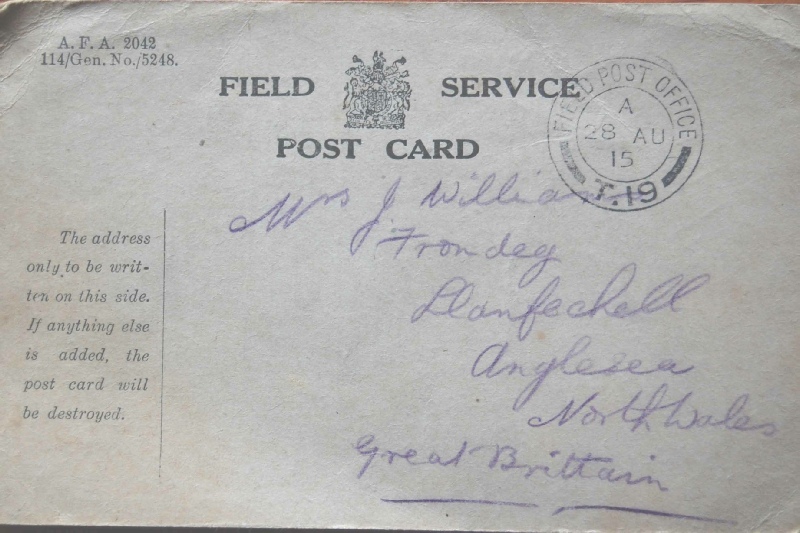 A. F. A. 2042
114/Gen. No./5248.
FIELD SERVICE
POST CARD
FIELD POST OFFICE
A
28 AU
15
T.19
The address
only to be writ-
ten on this side.
If anything else
is added, the
post card will
be destroyed.
Mrs J Williams
Frondeg
Llanfechell
Anglesea
North Wales
Great Brittain